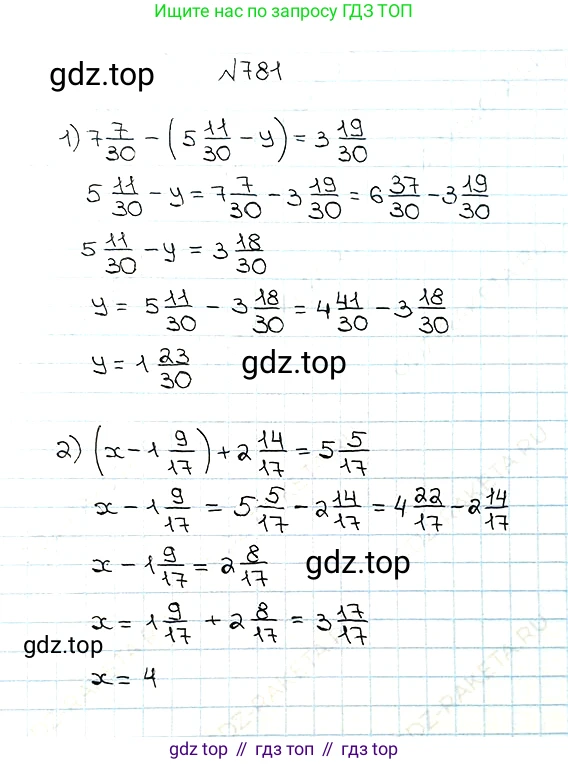 Ищите нас по запросу ГДЗ ТОП
gdz.top №781
1) 7 7/30 - (5 11/30 - y) = 3 19/30
5 11/30 - y = 7 7/30 - 3 19/30 = 6 37/30 - 3 19/30
5 11/30 - y = 3 18/30
y = 5 11/30 - 3 18/30 = 4 41/30 - 3 18/30
y = 1 23/30 gdz.top
2) (x - 1 9/17) + 2 14/17 = 5 5/17
x - 1 9/17 = 5 5/17 - 2 14/17 = 4 22/17 - 2 14/17
x - 1 9/17 = 2 8/17 gdz.top
x = 1 9/17 + 2 8/17 = 3 17/17
gdz.top
x = 4
GDZ-RAKETA.RU
GDZ-RAKETA.RU
gdz top // гдз топ // gdz.top